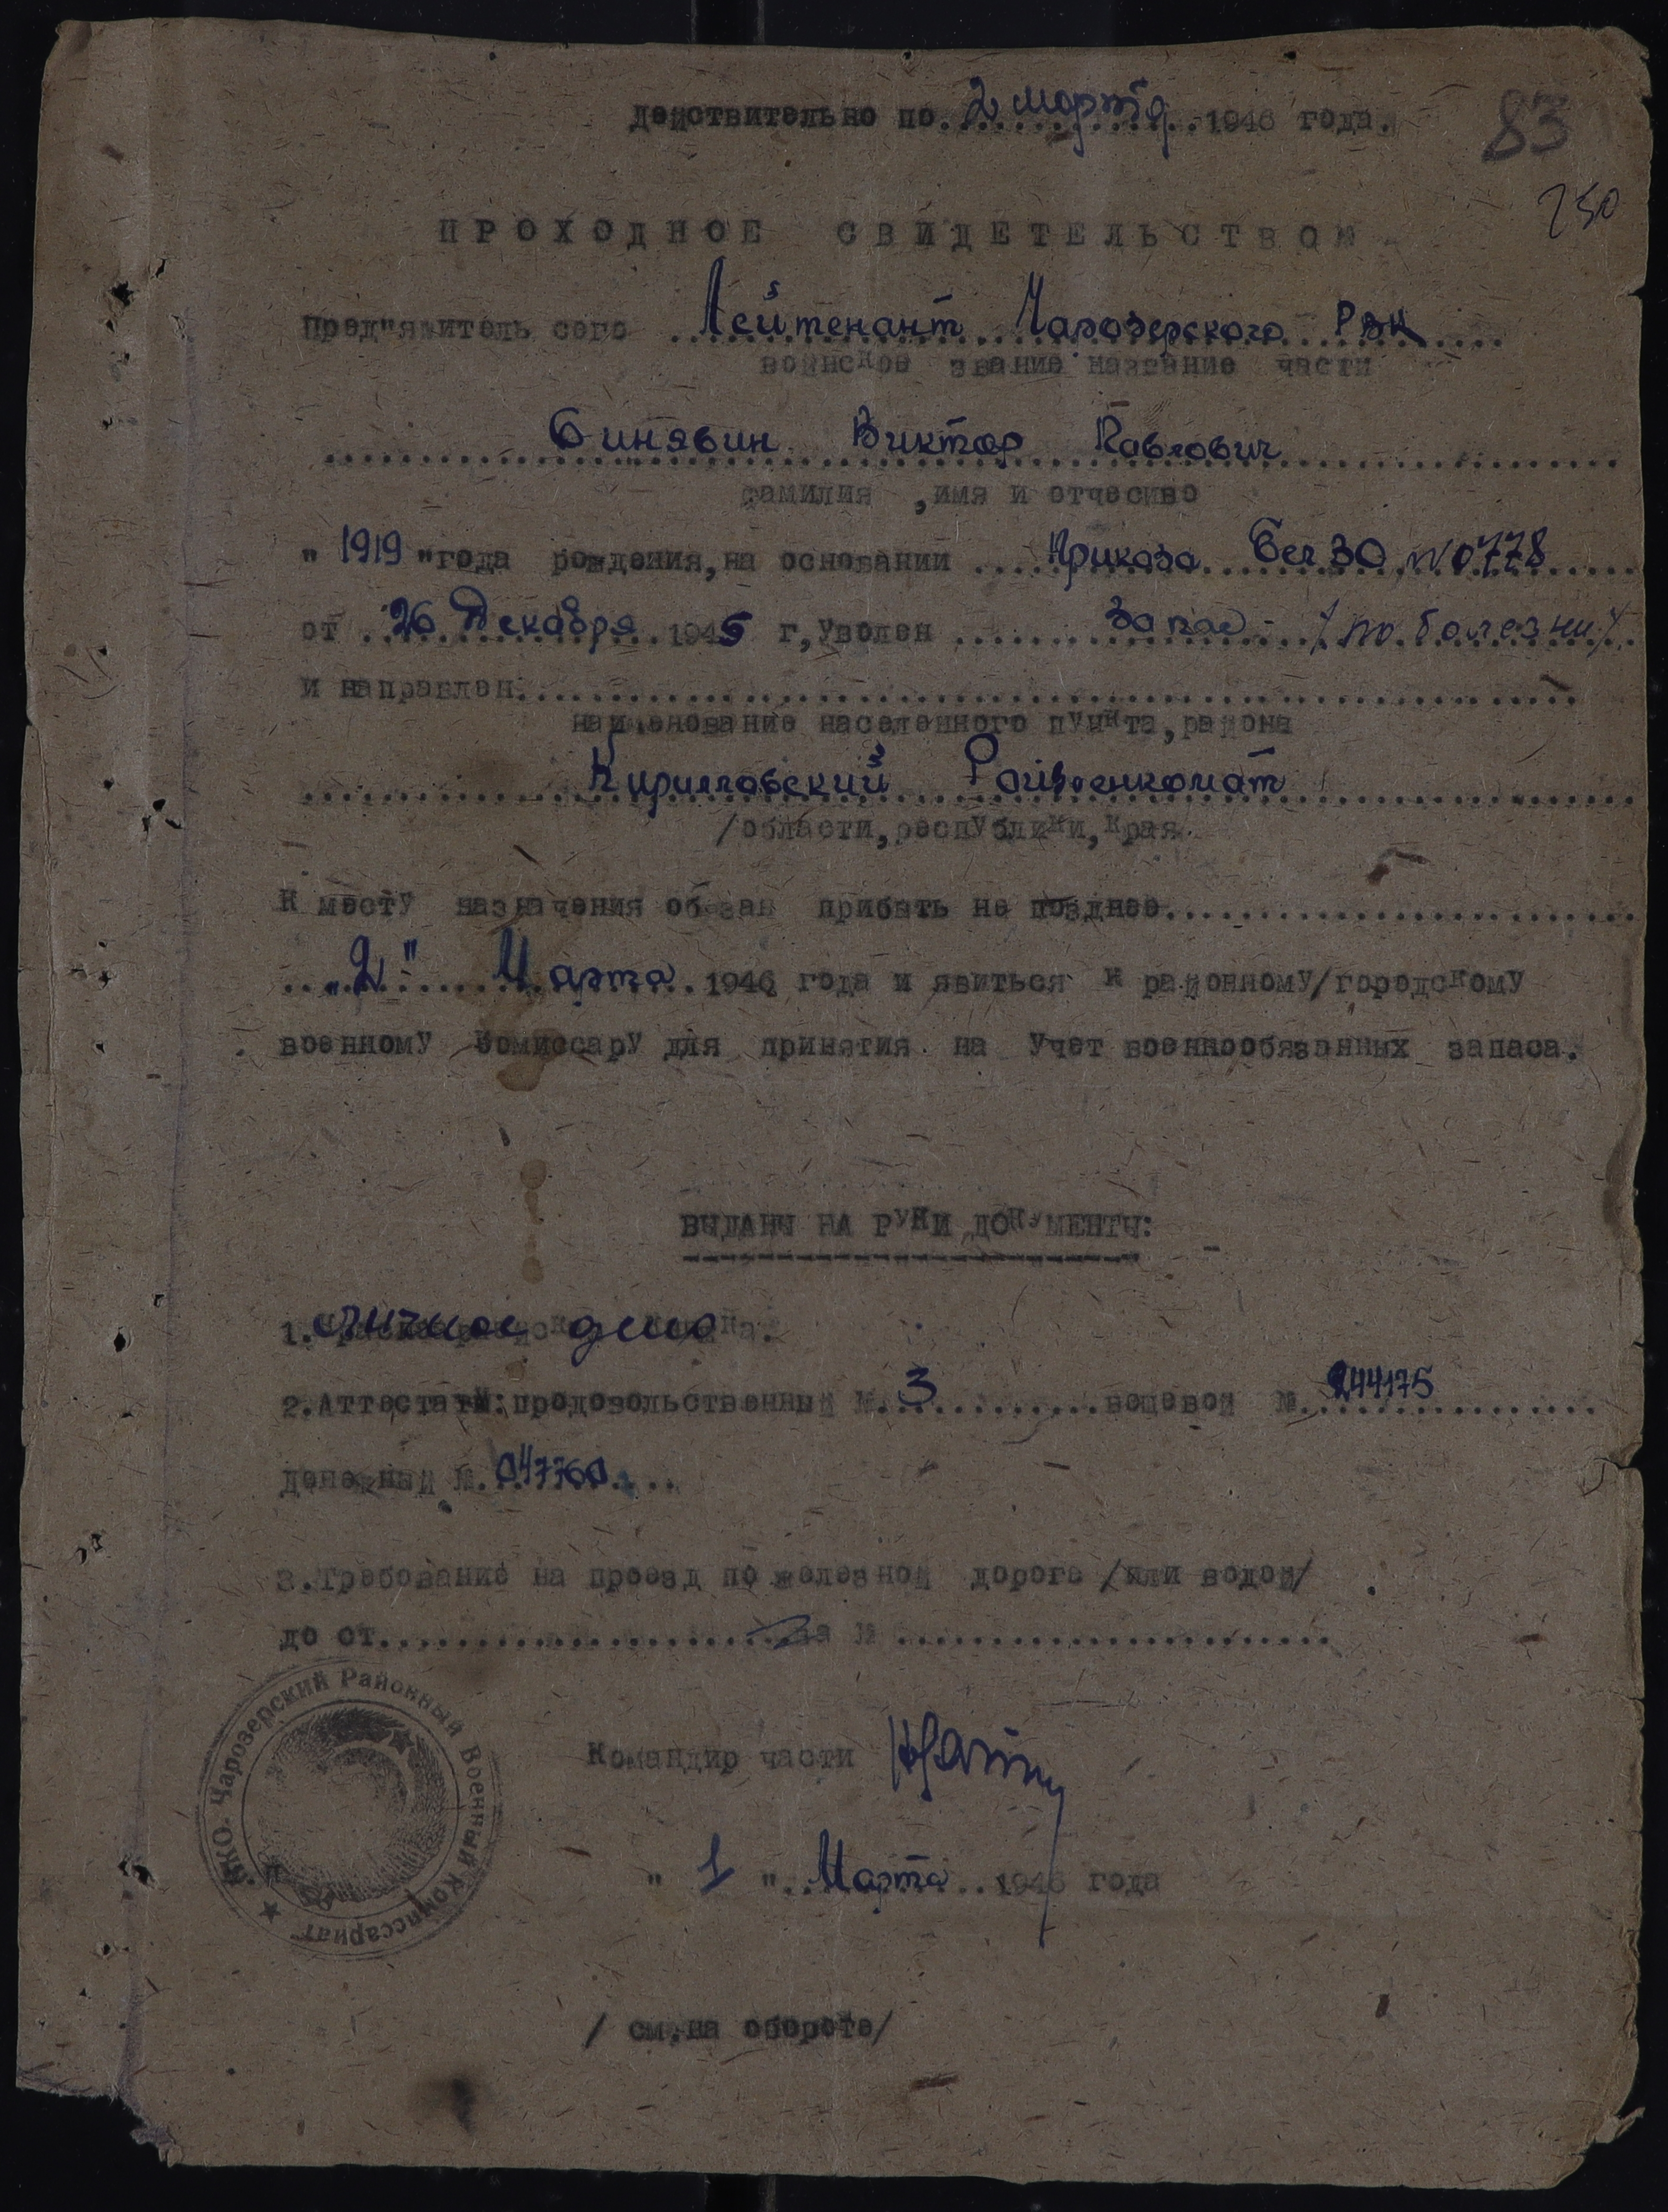 действительно по 2 марта 1946 года.
83
250
ПРОХОДНОЕ СВИДЕТЕЛЬСТВО
Пред"явитель сего Лейтенант Чарозерского РВК
воинское звание название части
Синявин Виктор Павлович
фамилия ,имя и отчесиво
" 1919 "года рождения,на основании Приказа Бел ВО №0778
от 26 Декабря 1945 г,уволен Запас - /по болезни/
и направлен
наименование населенного пункта,района
Кирилловский Райвоенкомат
/области,республики,края
К месту назначения обязан прибыть не позднее
"2" Марта 1946 года и явиться к районному/городскому
военному комиссару для принятия на учет военнообязанных запаса.
ВЫДАНЫ НА РУКИ ДОКУМЕНТЫ:
1. Личное дело
2.Аттестаты:продовольственный №. 3 вещевой № 244175
денежный №. 047760
3.Требование на проезд по железной дороге /или водой/
до ст. за №
НКО. Чарозерский Районный Военный Комиссариат
Командир части
" 1 " Марта 1946 года
/ см.на обороте/